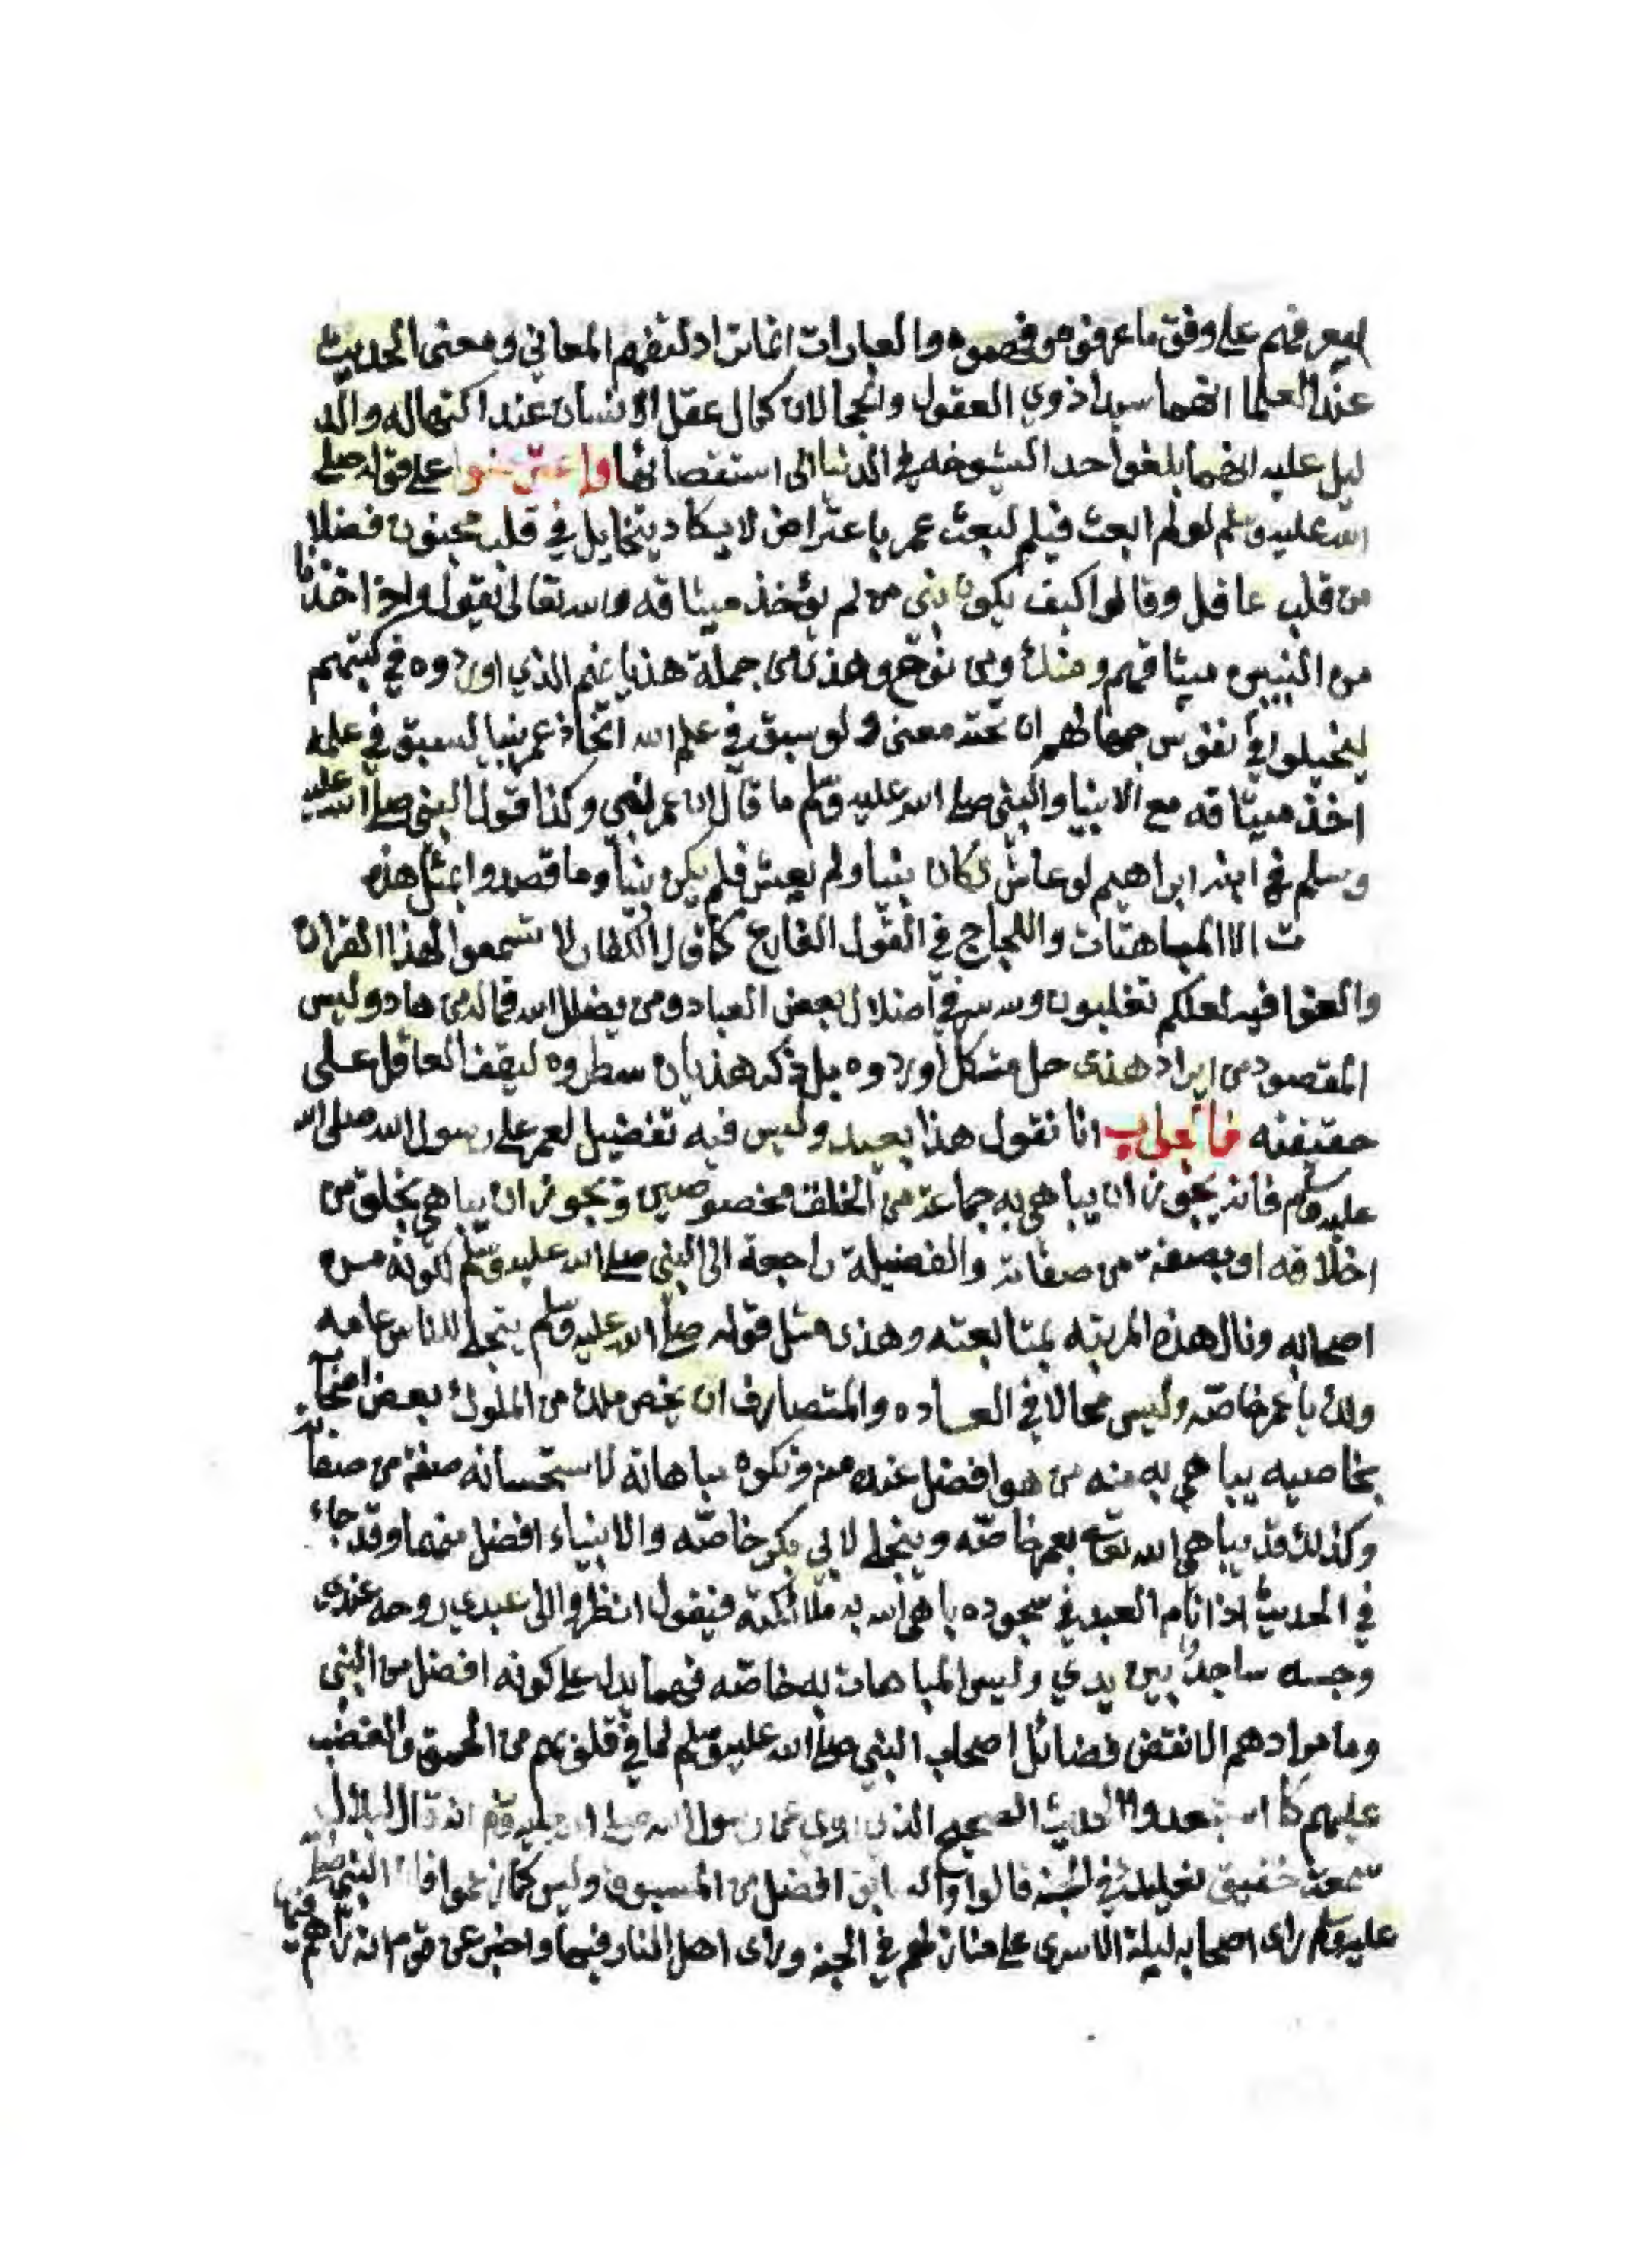 ليعرفهم على وفق ما عرفوه وفهموه والعبارات انما تراد لتفهم المعاني ومعنى الحديث
عند العلما انهما سيدا ذوي العقول والحجا لان كمال عقل الانسان عند اكتهاله والد
ليل عليه انهما بلغوا حد الشيوخه في الدنيا الى استقصائها واعترضوا على قوله صلى
الله عليه وسلم لو لم ابعث فيكم لبعث عمر باعتراض لا يكاد يتخايل في قلب مجنون فضلا
من قلب عاقل وقالوا كيف يكون نبي من لم يؤخذ ميثاقه والله تعالى يقول واذ اخذنا
من النبيين ميثاقهم ومنك ومن نوح وهذى من جملة هذيانهم الذي اوردوه في كتبهم
ليخيلوا في نفوس جهالهم ان تحته معنى ولو سبق في علم الله اتخاذ عمر نبيا لسبق في علمه
اخذ ميثاقه مع الانبيا والنبي صلى الله عليه وسلم ما قال ان عمر نبي وكذا قول النبي صلى الله عليه
وسلم في ابنه ابراهيم لو عاش لكان نبيا ولم يعش فلم يكن نبيا وما قصدوا بمثل هذه
ت الا المباهتات واللجاج في القول الفارغ كما قال الكفار لا تسمعوا لهذا القران
والغوا فيه لعلكم تغلبون ولله سر في اضلال بعض العباد ومن يضلل الله فما له من هاد وليس
المقصود من ايراد هذى حل مشكل اوردوه بل ذكر هذيان سطروه ليقف العاقل على
حقيقته فالجواب انا نقول هذا بعيد وليس فيه تفضيل لعمر على رسول الله صلى الله
عليه وسلم فانه يجوز ان يباهي به جماعة من الخلق مخصوصين ويجوز ان يباهي بخلق من
اخلاقه او بصفة من صفاته والفضيلة راجعة الى النبي صلى الله عليه وسلم لكونه من
اصحابه ونال هذه المرتبه بمتابعته وهذى مثل قوله صلى الله عليه وسلم يتجلى للناس عامه
ولك يا عمر خاصه وليس محالا في العاده والمتصارف ان يخص ملك من الملوك بعض اصحابه
بخاصيه يباهي به منه من هو افضل عنده منه وتكون مباهاته لاستحسانه صفة من صفاته
وكذلك قد يباهي الله تعالى بعمر خاصه ويتجلى لابي بكر خاصه والانبياء افضل منهما وقد جاء
في الحديث اذا نام العبد في سجوده باهى الله به ملائكته فيقول انظروا الى عبدي روحه عندى
وجسده ساجدا بين يدي وليس المباهات به خاصه فيهما يدل على كونه افضل من النبي
وما مرادهم الا نقض فضائل اصحاب النبي صلى الله عليه وسلم لما في قلوبهم من الحمق والغضب
عليهم كما استبعدوا الحديث الصحيح الذي روي عن رسول الله صلى الله عليه وسلم انه قال لبلال
سمعت خفيق نعليك في الجنه قالوا والسابق افضل من المسبوق وليس كما زعموا فان النبي صلى الله
عليه وسلم راى اصحابه ليلة الاسرى على منازلهم في الجنه وراى اهل النار فيها واخبر عن قوم انه راهم فيها